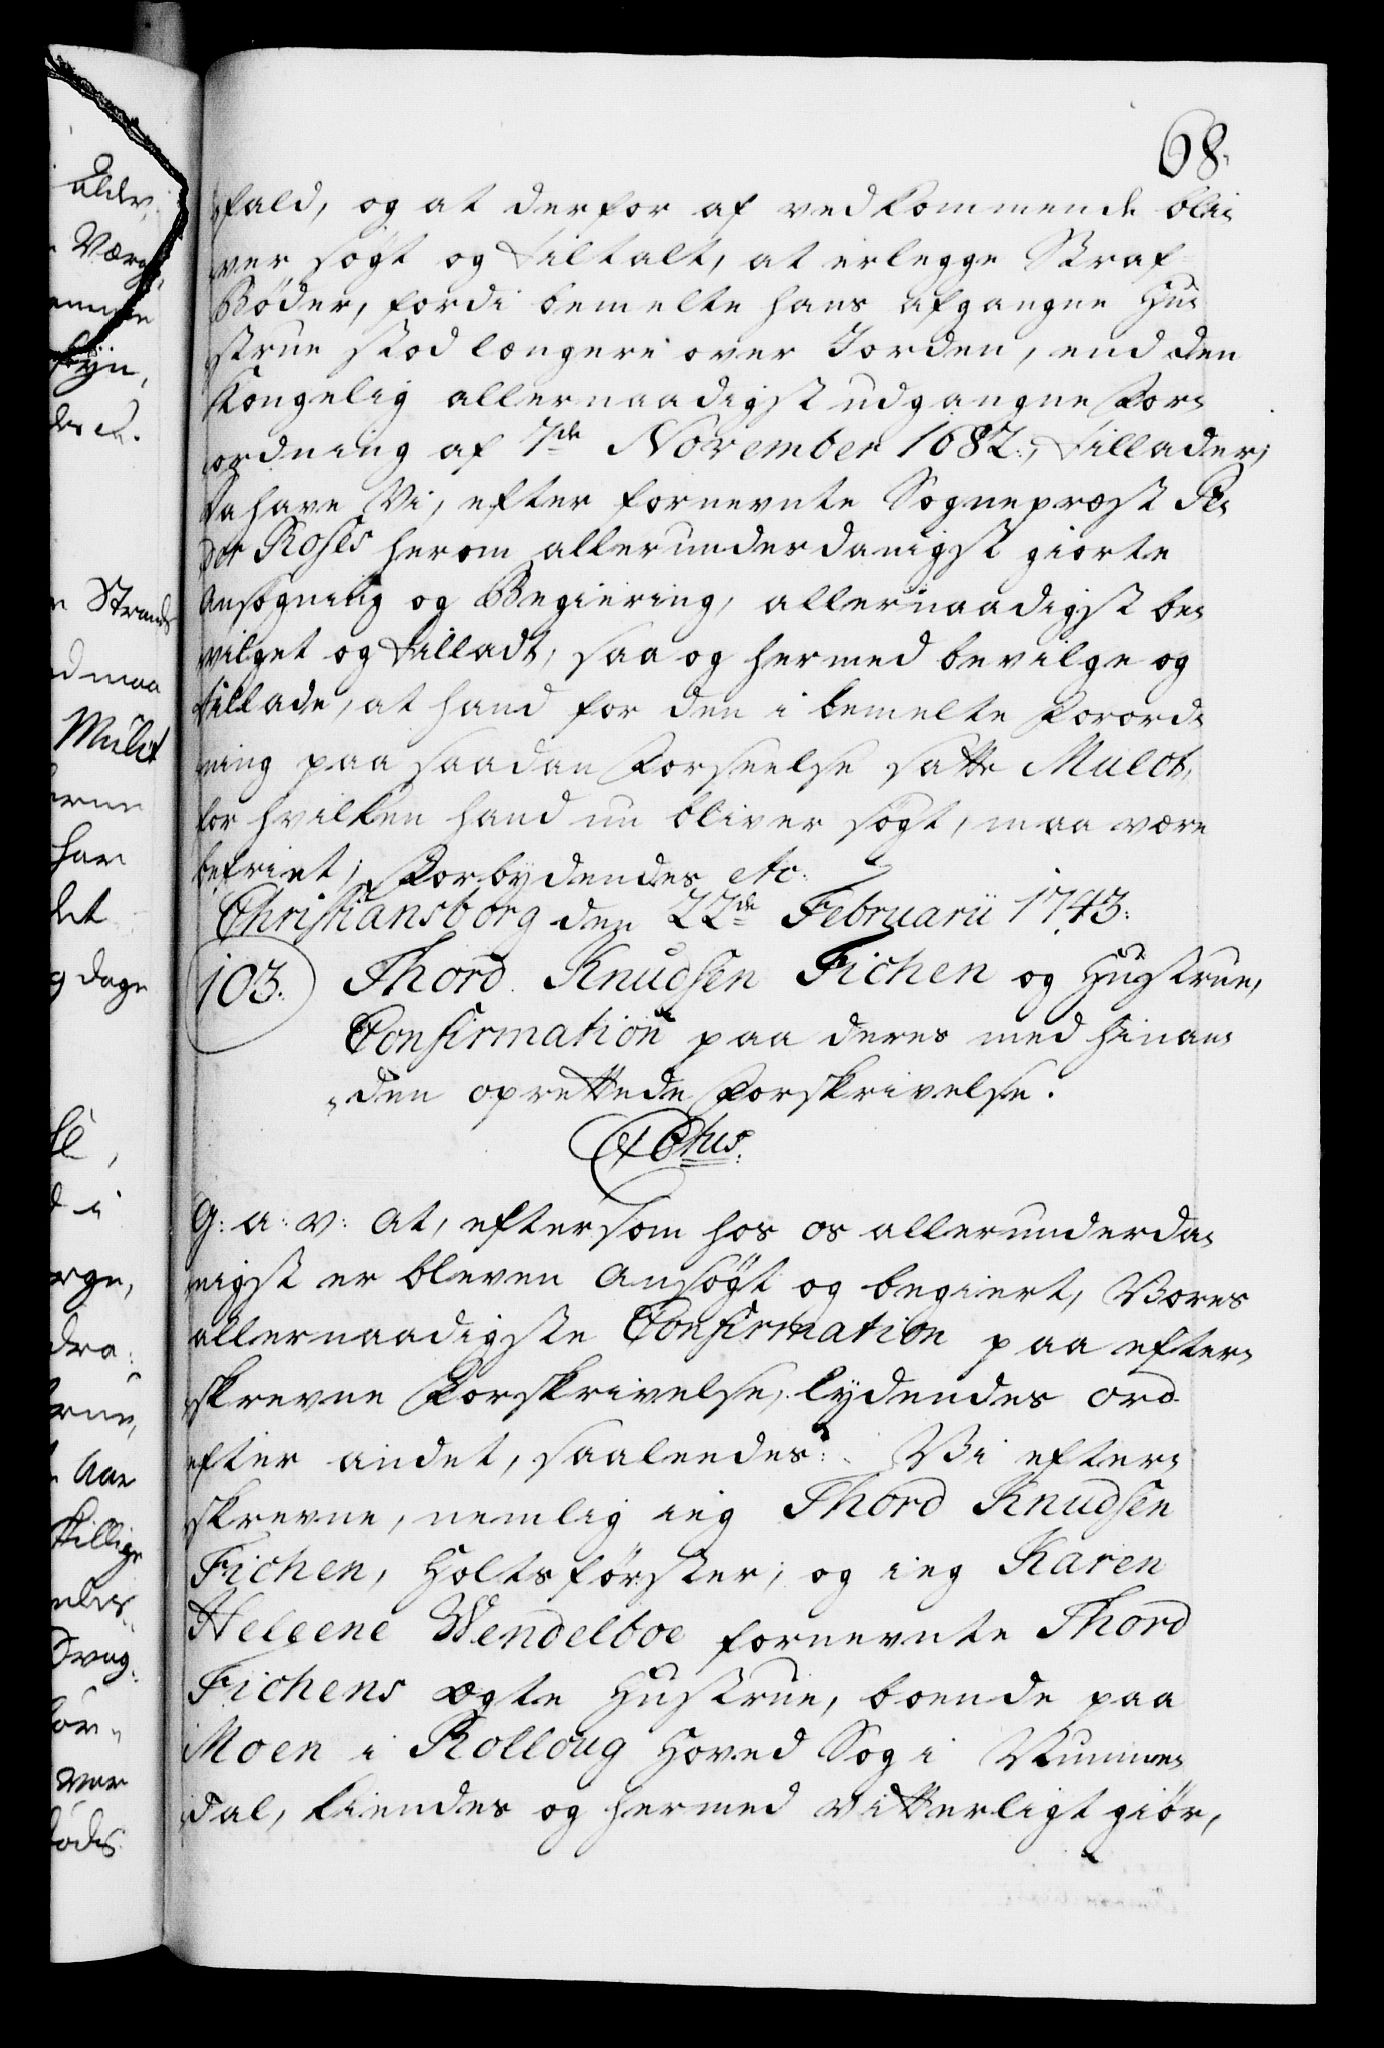 68.
fald, og at derfor af vedkommende bli-
ver søgt og tiltalt, at erlegge Straf-
Bøder, fordi bemelte hans afgangne Hu-
strue stod længere over Jorden, end den
Kongelig allernaadigst udgangne For-
ordning af 7de November 1682., tillader;
Da have Vi, efter fornevnte Sognepræst Pe-
der Roses herom allerunderdanigst giorte
Ansøgning og Begiering, allernaadigst be-
vilget og tilladt, saa og hermed bevilge og
tillade, at hand for den i bemelte Forord-
ning paa saadan Forseelse satte Mulct,
for hvilken hand nu bliver søgt, maa være
befriet; Forbydendes etc:
Christiansborg den 22de Februarii 1743:
103. Thord Knudsen Fichen og Hustrue,
Confirmation paa deres med hinan-
den oprettede Forskrivelse.
C6tus.
G: a: v: At, eftersom hos os allerunderda-
nigst er bleven Ansøgt og begiert, Vores
allernaadigste Confirmation paa efter-
skrevne Forskrivelse, lydendes ord
efter andet, saaleedes: Vi efter-
skrevne, nemlig ieg Thord Knudsen
Fichen, Holtsförster; og ieg Karen
Heleene Wendelboe fornevnte Thord
Fichens ægte Hustrue, boende paa
Moen i Rolloug Hoved Sogn i Numme-
dal, kiendes og hermed vitterligt giør,